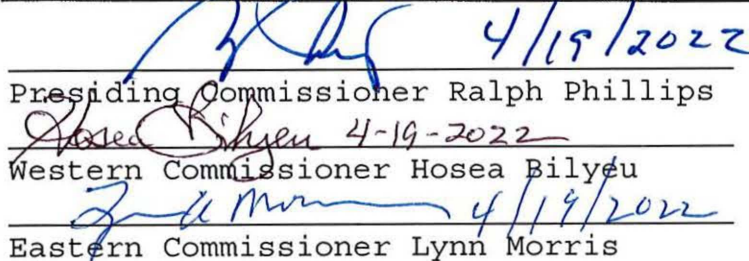 4/19/2022
Presiding Commissioner Ralph Phillips
Hosea Bilyeu 4-19-2022
Western Commissioner Hosea Bilyeu
4/19/2022
Eastern Commissioner Lynn Morris